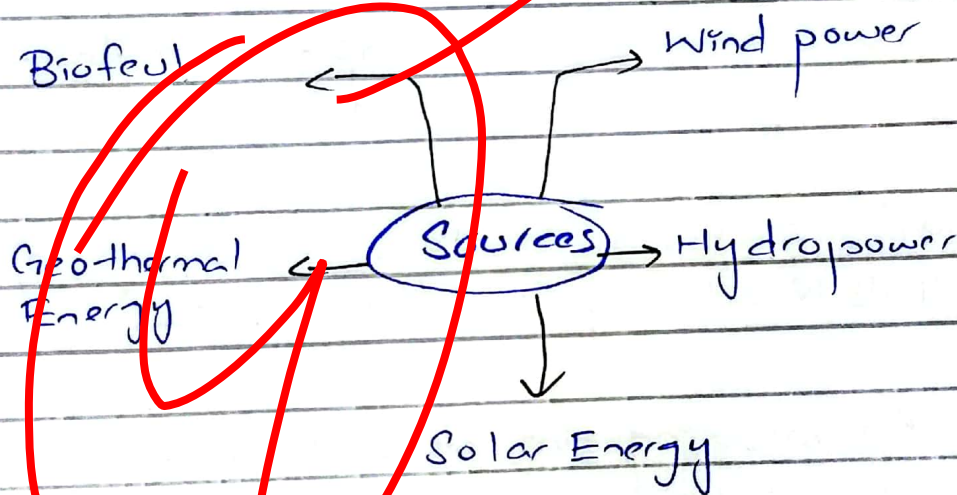 Biofeul
Wind power
Geothermal
Energy
Sources
Hydropower
Solar Energy